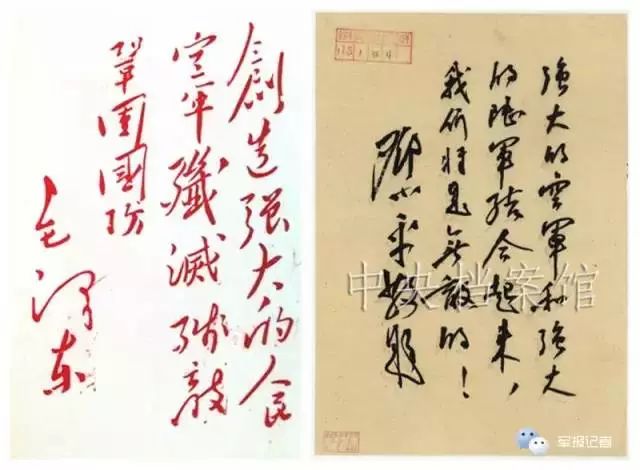 創造强大的人民
空军殲滅残敵
鞏固國防
毛澤东
强大的空軍和强大
的陸軍结合起来,
我们将是无敵的!
鄧小平
中央档案馆
军报记者